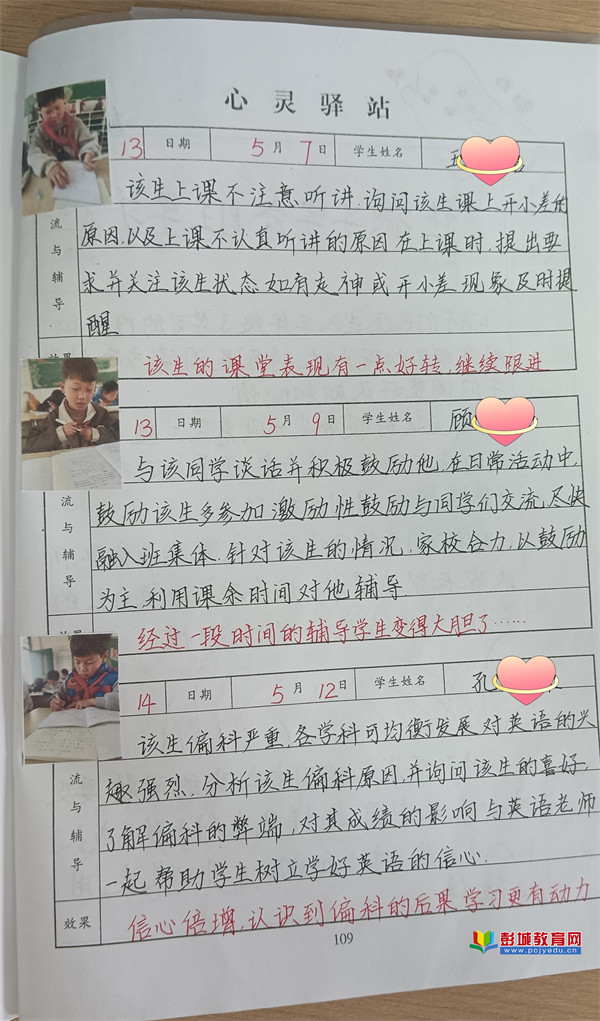 心灵驿站
13 日期 5月7日 学生姓名
该生上课不注意听讲.询问该生课上开小差的
流与辅导
原因.以及上课不认真听讲的原因在上课时,提出要
求并关注该生状态如有走神或开小差现象及时提
醒
该生的课堂表现有一点好转,继续跟进
13 日期 5月9日 学生姓名 顾
与该同学谈话并积极鼓励他,在日常活动中,
流与辅导
鼓励该生多参加激励性鼓励与同学们交流,尽快
融入班集体.针对该生的情况,家校合力,以鼓励
为主,利用课余时间对他辅导.
经过一段时间的辅导学生变得大胆了……
14 日期 5月12日 学生姓名 孔
该生偏科严重,各学科可均衡发展对英语的兴
流与辅导
趣强烈.分析该生偏科原因,并询问该生的喜好,
了解偏科的弊端,对其成绩的影响与英语老师
一起帮助学生树立学好英语的信心.
效果
信心倍增,认识到偏科的后果学习更有动力
109
彭城教育网
www.pcjyedu.cn